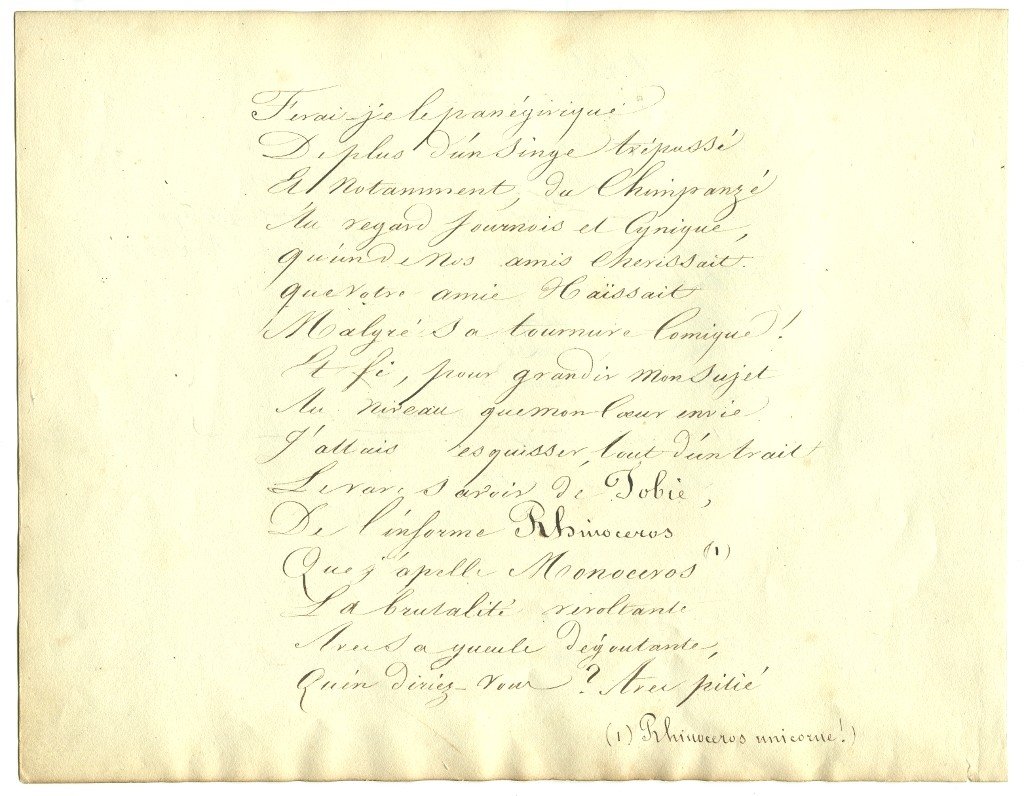 Ferai-je le panégirique
De plus d'un Singe trépassé
Et Notamment, du Chimpanzé
Au regard Sournois et Cynique,
Qu'un de Nos amis Cherissait.
Que Votre amie Haïssait
Malgré Sa tournure Comique !
Et fi, pour grandir mon Sujet
Au niveau que mon Cœur envie
J'allais esquisser, tout d'un trait
Le rare Savoir de Tobie,
De l'informe Rhinoceros
Que j'apelle Monoceros (1)
La brutalité revoltante
Avec Sa gueule dégoutante,
Qu'en diriez-vous ? Avec pitié
(1) Rhinoceros unicorne !)